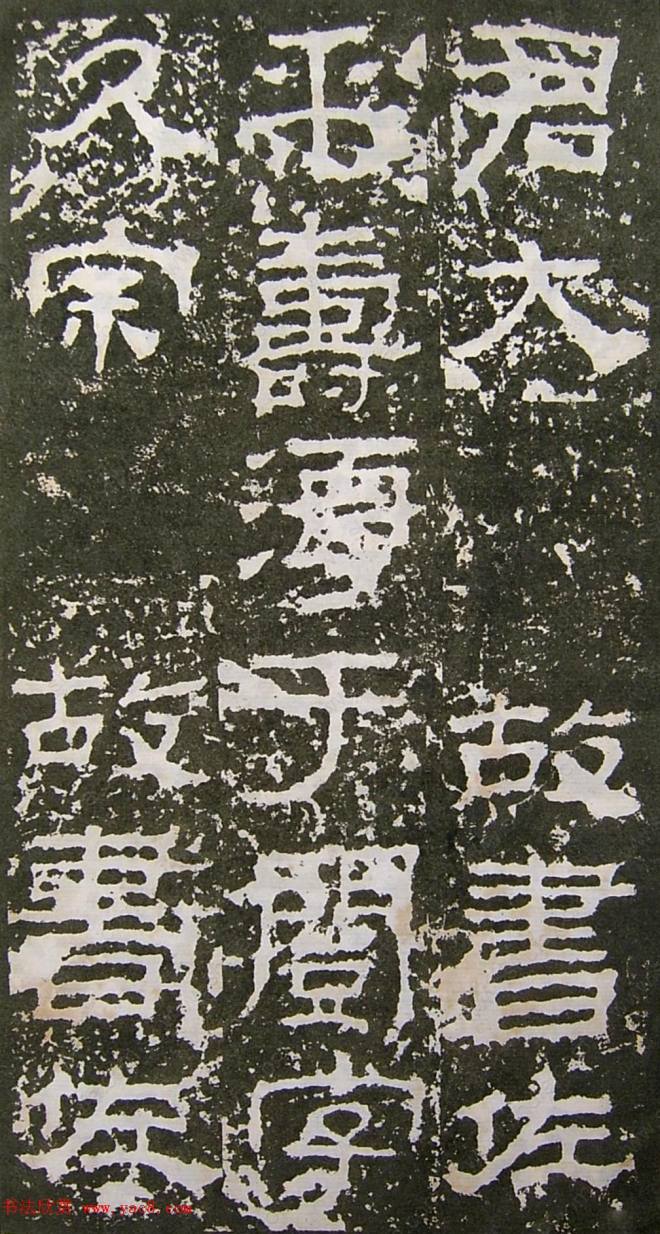 君大 故書佐
平壽淳于闓字
久宗 故書佐
书法欣赏 www.yac8.com